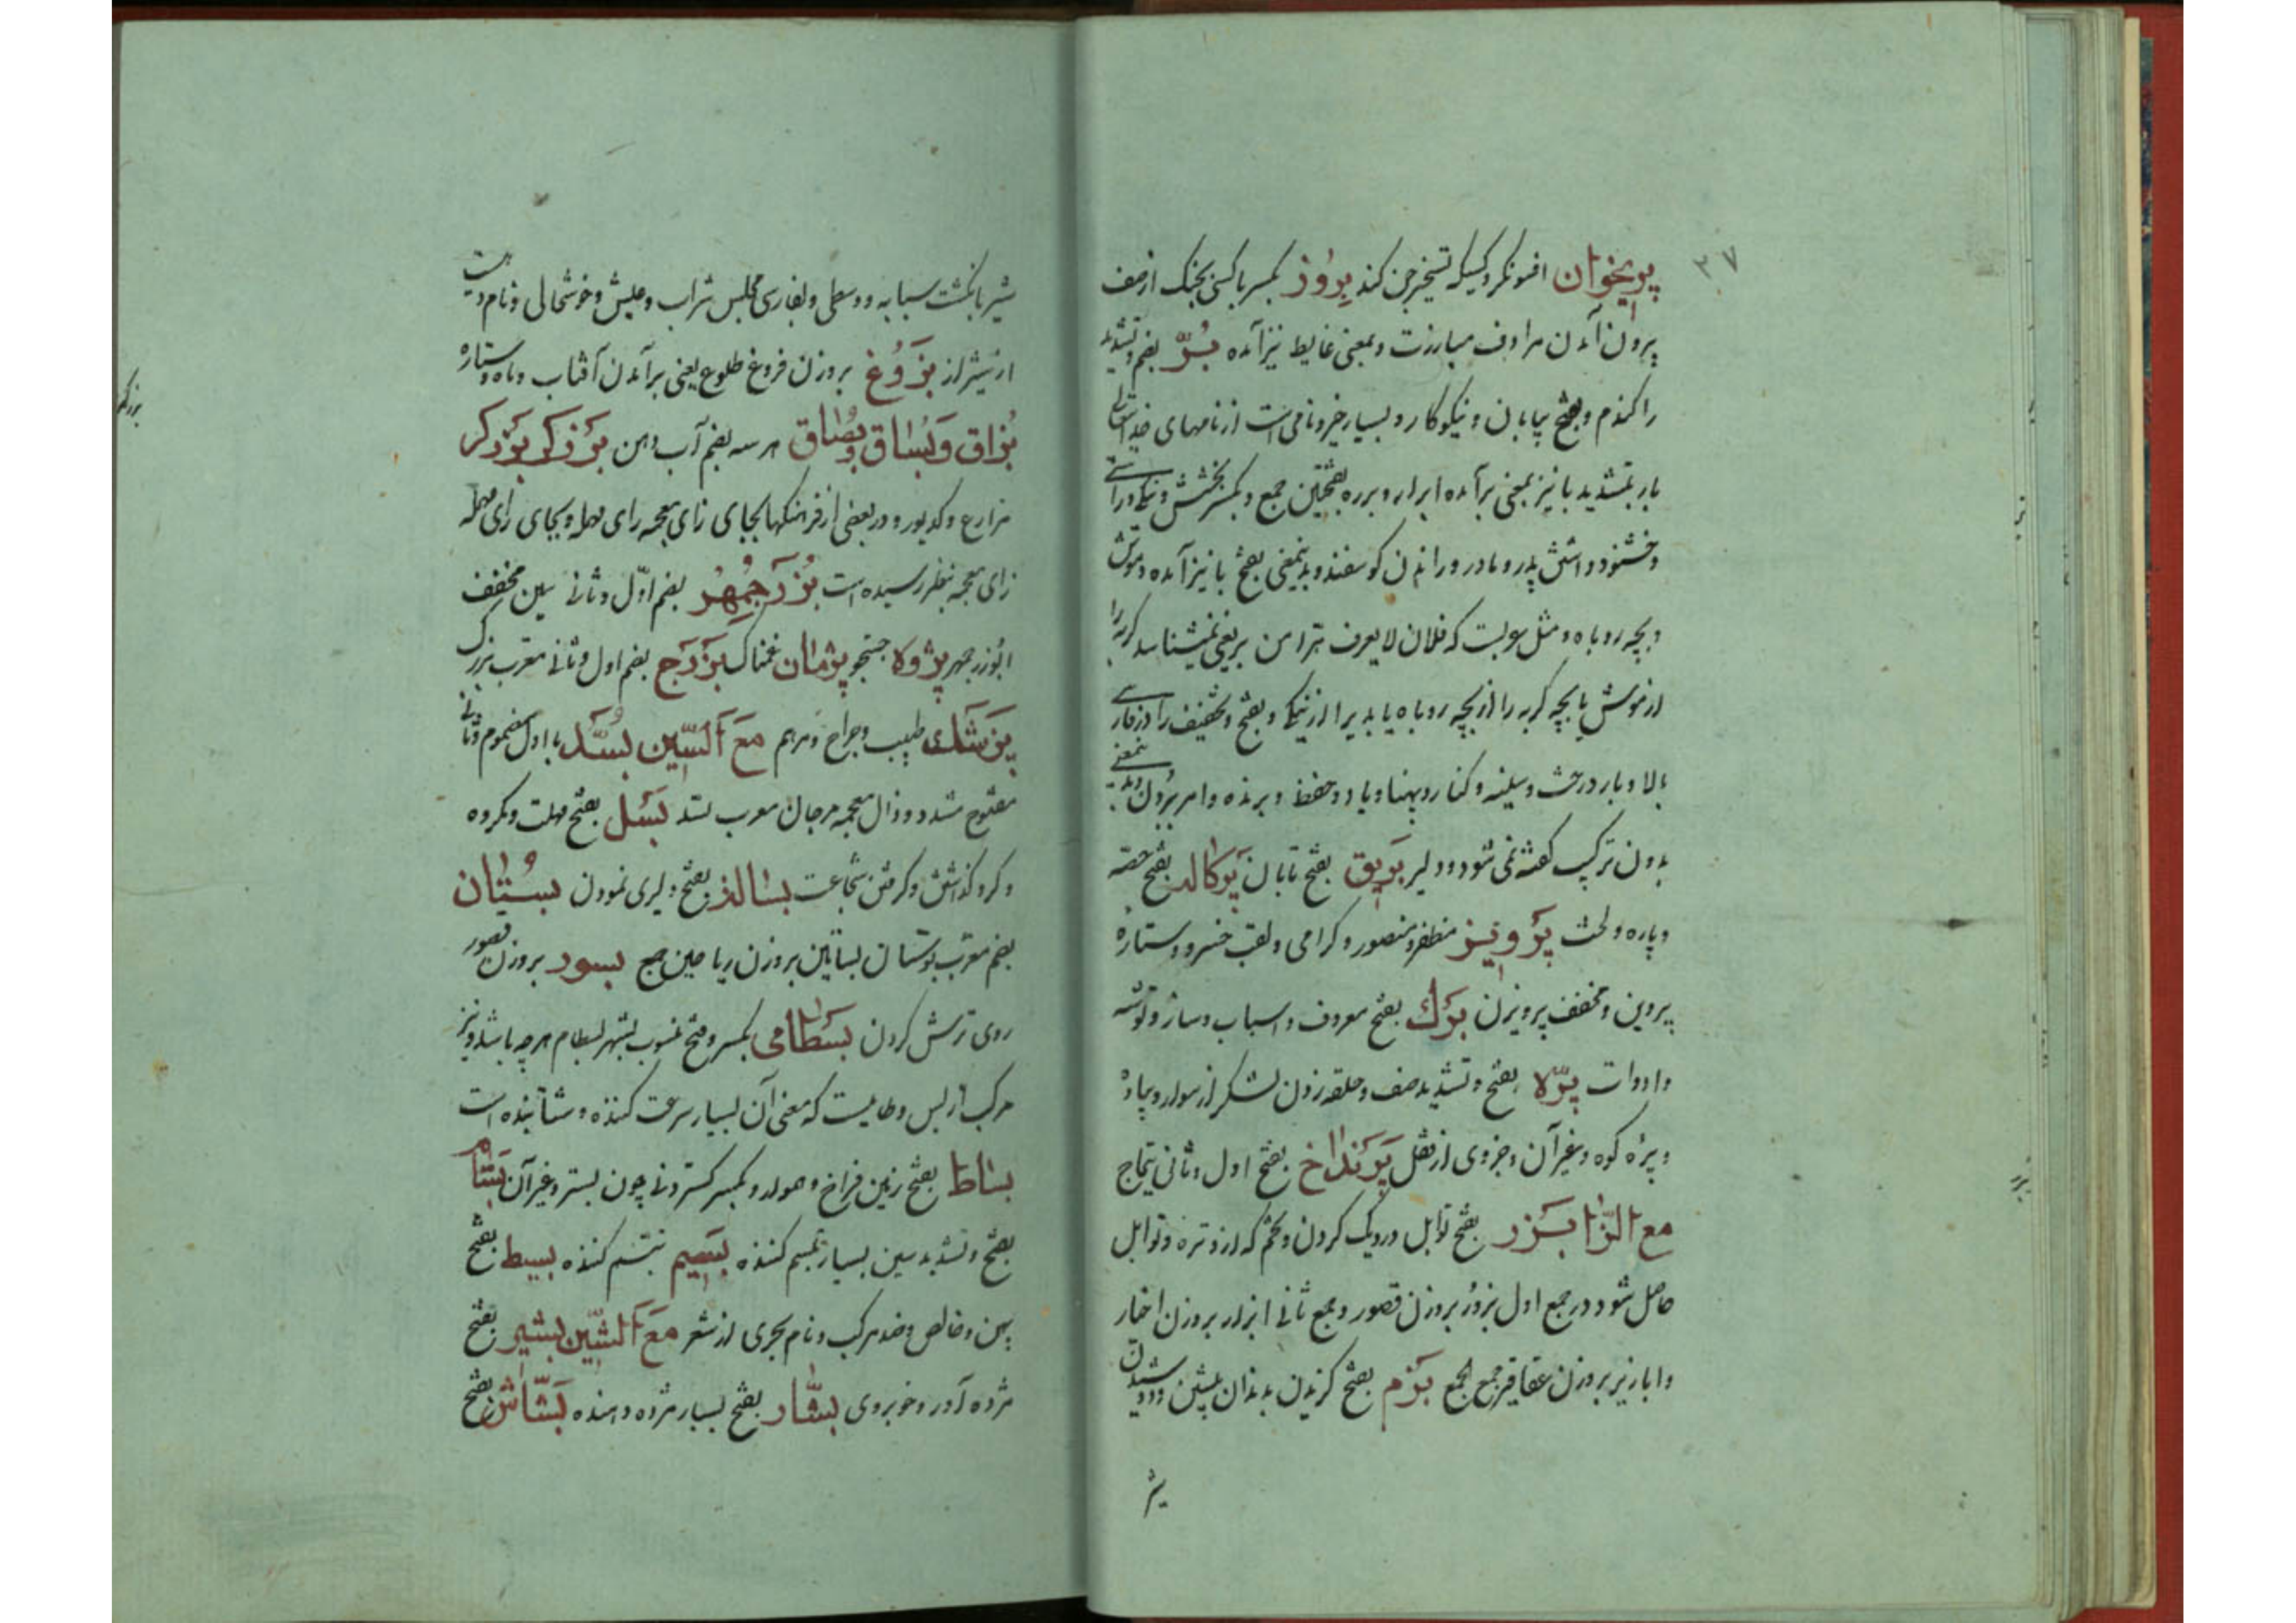 ۳۷
پریخوان افسونگر و کسیکه تسخیر جن کند بروز بکسر با کسی بجنگ از صف
برون آمدن مرادف مبارزت و بمعنی غایط نیز آمده بُرّ بضم و تشدید
را گندم و بفتح بیابان و نیکوکار و بسیار خیر و نامی است از نامهای خدایتعالی
بار بتشدید با نیز بمعنی بر آمده ابرار و برره بفتحتین جمع و بکسر بخشش و نیکی و راستی
و خشنود داشتن پدر و مادر و راندن گوسفند و بدینمعنی بفتح با نیز آمده و موش
و بچه روباه و مثل عربیت که فلان لا یعرف هرا من بر یعنی نمیشناسد گربه را
از موش یا بچه گربه را از بچه روباه یا بدی را از نیکی و بفتح و تخفیف را در فارسی
بالا و بار درخت و سینه و کنار و پهنا و یاد و حفظ و برنده و امر بردن و بدینمعنی
بدون ترکیب گفته نمی شود و دلیر بریق بفتح تابان پرکاله بفتح حصه
و پاره و لخت پرویز مظفر و منصور و گرامی و لقب خسرو و ستاره
پروین و مخفف پرویزن برک بفتح معروف و اسباب و ساز و توشه
و ادوات پرّه بفتح و تشدید صف و حلقه زدن لشکر از سوار و پیاده
و پره کوه و غیر آن و جزوی از قفل پرنداخ بفتح اول و ثانی تیماج
مع الزا بزر بفتح توابل در دیک کردن و تخم که از و تره و توابل
حاصل شود در جمع اول بزور بروزن قصور و جمع ثانی ابزار بروزن اخبار
و ابازیر بروزن عقاقیر جمع الجمع بزم بفتح گزیدن بدندان پیشین و دوشیدن
شیر
شیر بانگشت سبابه و وسطی و بفارسی مجلس شراب و عیش و خوشحالی و نام دهیست
از شیراز بزوغ بروزن فروغ طلوع یعنی بر آمدن آفتاب و ماه و ستاره
بزاق و بساق و بصاق هر سه بضم آب دهن برزکر بزرکر
مزارع و کدیور و در بعضی از فرهنکها بجای زای معجمه رای مهمله و بجای رای مهمله
زای معجمه بنظر رسیده است بزرجمهر بضم اول و ثانی سین مخفف
ابوزرجمهر پژوه جستجو پژمان غمناک بزرج بضم اول و ثانی معرب بزرک
پزشک طبیب و جراح و مرهم مع السّین بسّد با اول مضموم و ثانی
مفتوح مشدد و ذال معجمه مرجان معرب بسد بسل بفتح مهلت و مکروه
و کرو کذاشتن و کرفتن شجاعت بسالة بفتح دلیری نمودن بستان
بضم معرب بوستان بساتین بروزن ریاحین جمع بسور بروزن قصور
روی ترش کردن بسطامی بکسر و فتح منسوب بشهر بسطام هر چه باشد و نیز
مرکب از بس و طامیست که معنی آن بسیار سرعت کننده و شتابنده است
بساط بفتح زمین فراخ و هموار و بکسر کستردنی چون بستر و غیر آن بسّام
بفتح و تشدید سین بسیار تبسم کننده بسیم تبسم کننده بسیط بفتح
پهن و خالص و ضد مرکب و نام بحری از شعر مع الشّین بشیر بفتح
مژده آور و خوبروی بشّار بفتح بسیار مژده دهنده بشّاش بفتح